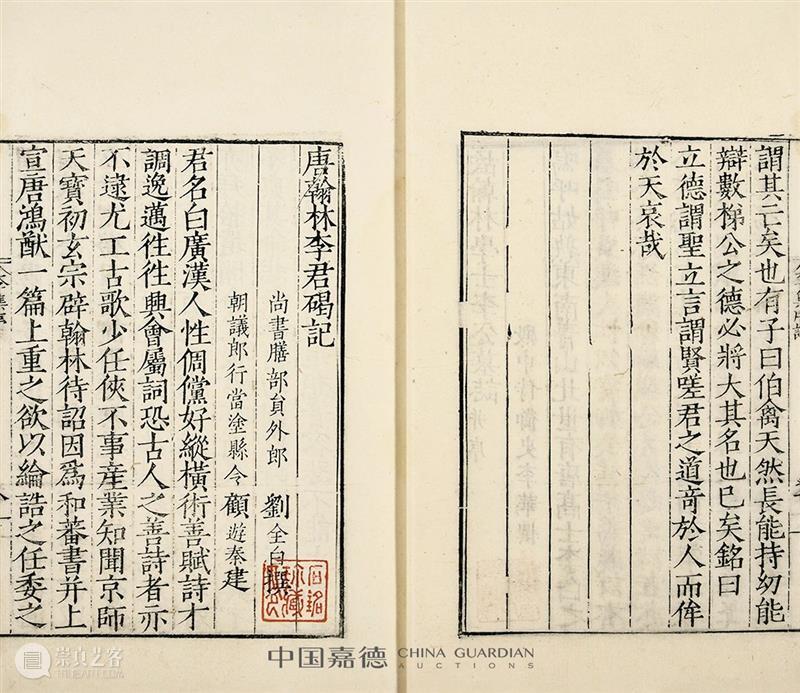 謂其亡矣也有子曰伯禽天然長能持幼能
辯數梯公之德必將大其名也巳矣銘曰
立德謂聖立言謂賢嗟君之道奇於人而侔
於天哀哉
唐翰林李君碣記
尚書膳部員外郎劉全白撰
朝議郎行當塗縣令顧遊秦建
君名白廣漢人性倜儻好縱橫術善賦詩才
調逸邁往往興會屬詞恐古人之善詩者亦
不逮尤工古歌少任俠不事産業知聞京師
天寶初玄宗辟翰林待詔因爲和蕃書并上
宣唐鴻猷一篇上重之欲以綸誥之任委之
中国嘉德 CHINA GUARDIAN
AUCTIONS
崇真艺客